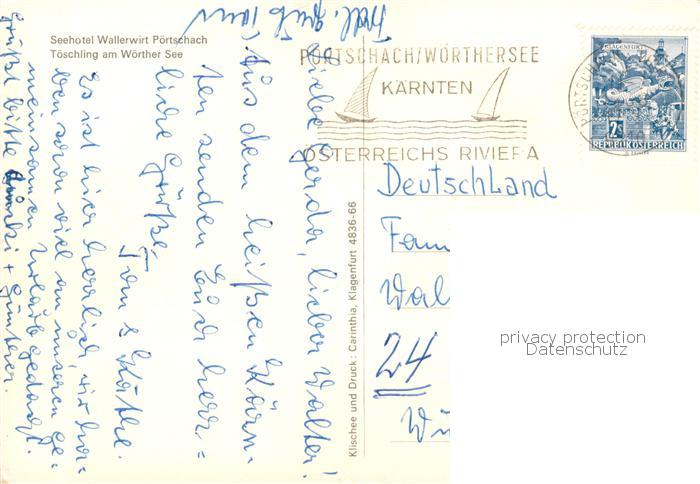 Seehotel Wallerwirt Pörtschach
Töschling am Wörther See
PÖRTSCHACH/WÖRTHERSEE
KÄRNTEN
ÖSTERREICHS RIVIERA
KLAGENFURT
2S
REPUBLIK ÖSTERREICH
Liebe Gerda, lieber Walter!
Aus dem heißen Kärn-
ten senden Euch herz-
liche Grüße,
Toni & Käthe.
Es ist hier herrlich, wir ha-
ben schon viel an unseren ge-
meinsamen Urlaub gedacht.
Grüßt bitte + Günther.
Klischee und Druck: Carinthia, Klagenfurt 4836-66
Deutschland
Fam
Wal
24
privacy protection
Datenschutz